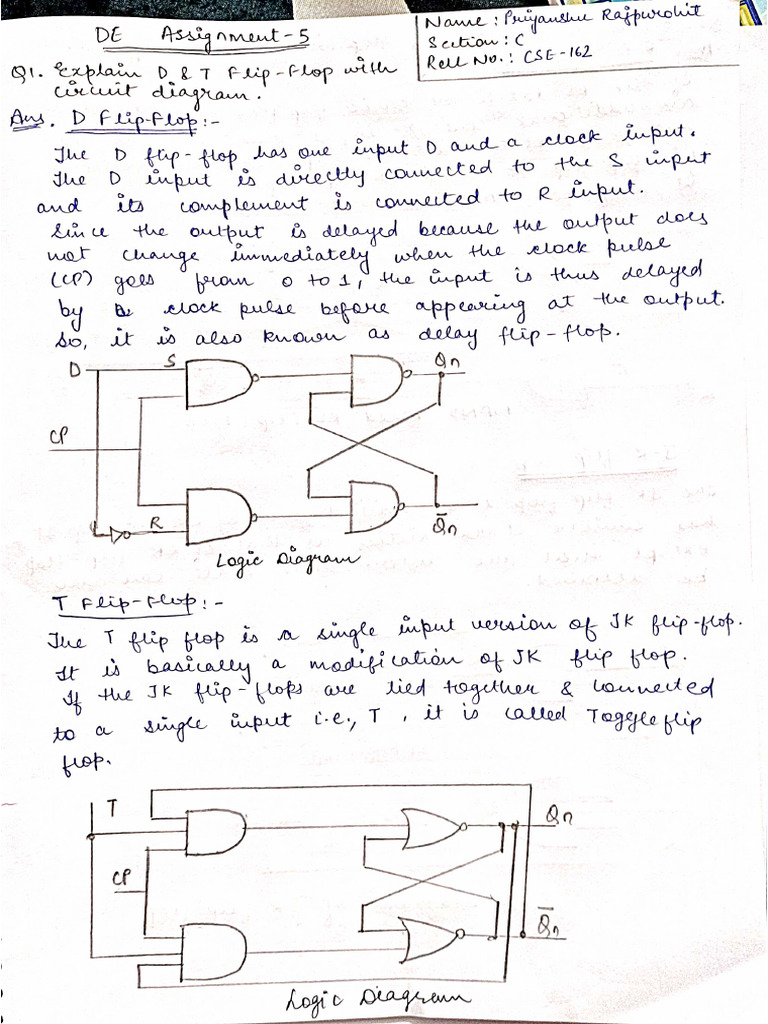 DE Assignment-5
Name : Priyanshu Rajpurohit
Section : C
Roll No. : CSE-162
Q1. Explain D & T Flip-Flop with
circuit diagram.
Ans. D Flip-Flop :-
The D flip-flop has one input D and a clock input.
The D input is directly connected to the S input
and its complement is connected to R input.
Since the output is delayed because the output does
not change immediately when the clock pulse
(CP) goes from 0 to 1, the input is thus delayed
by clock pulse before appearing at the output.
So, it is also known as delay flip-flop.
D S Qn
CP
R Q̅n
Logic Diagram
T Flip-Flop :-
The T flip flop is a single input version of JK flip-flop.
It is basically a modification of JK flip flop.
If the JK flip-flops are tied together & connected
to a single input i.e., T, it is called Toggle flip
flop.
T Qn
CP
Q̅n
Logic Diagram